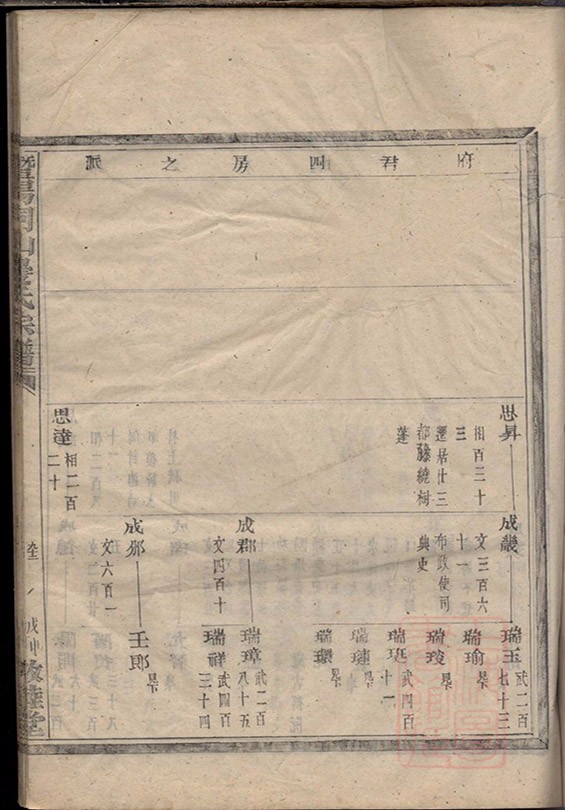 府君四房之派
思昇
相百三十
三
遷居廿三
都藤繞樹
蓬
思達
相二百
二十
成畿
文三百六
十一
布政使司
典吏
成郡
文四百十
成鄉
文六百一
瑞玉
武二百
七十三
瑞瑜
瑞琰
瑞珽
武四百
十一
瑞璉
瑞環
瑞璋
武二百
八十五
瑞祥
武四百
三十四
王郎
暨陽同山
氏宗譜
戊申
敦睦堂